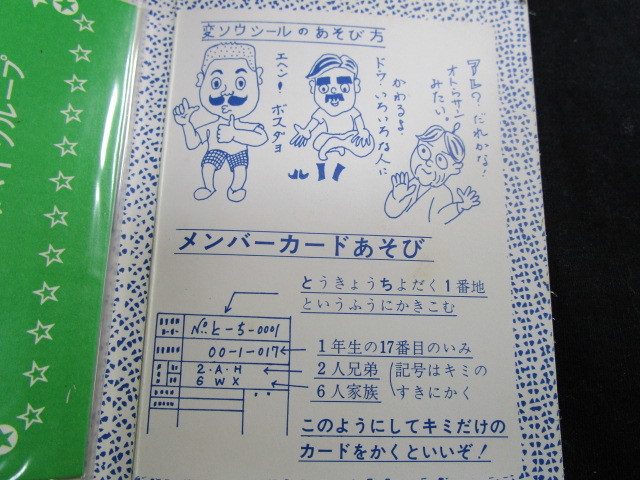 変ソウシールのあそび方
エヘン!
ボスダヨ
ドウ、いろいろな人に
かわるよ
だれかな!
オトウサン
みたい。
メンバーカードあそび
とうきょうちよだく1番地
というふうにかきこむ
No.と-ち-0001
00-1-017
1年生の17番目のいみ
2・A・H
2人兄弟
(記号はキミの
6 W X
6人家族
すきにかく
このようにしてキミだけの
カードをかくといいぞ!